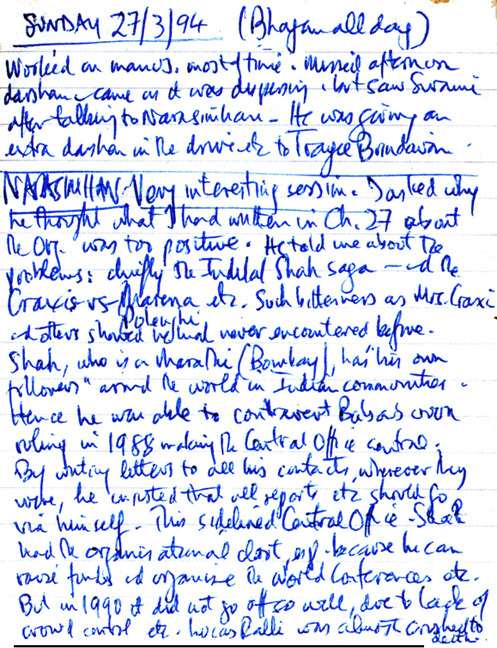 SUNDAY 27/3/94 (Bhajan all day)
Worked on manus. most of time. Missed afternoon
darshan - came as it was dispersing. but saw Swami
after talking to Narasimhan - He was giving an
extra darshan in the drive etc to Brindavan.
NARASIMHAN. Very interesting session. I asked why
he thought what I had written in Ch. 27 about
the Org. was too positive. He told me about the
problems: chiefly the Indulal Shah saga - and the
Craxis vs etc. Such bitterness as Mrs. Craxi
and others showed he had never encountered before.
Shah, who is a Marathi (Bombay), has "his own
followers" around the world in Indian communities.
Hence he was able to contravent Baba's own
ruling in 1988 making the Central Office central.
By writing letters to all his contacts, wherever they
were, he insisted that all reports etc should go
via himself. This sidelined Central Office. Shah
had the organisational clout, esp. because he can
raise funds and organise the World Conferences etc.
But in 1990 it did not go off so well, due to lack of
crowd control etc. Lucas Ralli was almost crushed to
death.